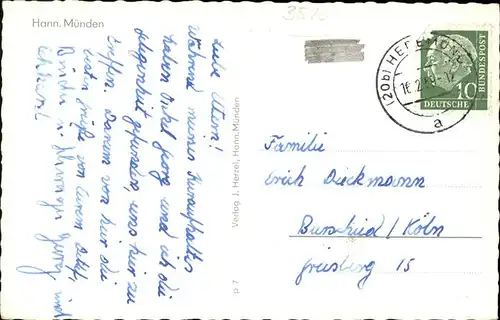 Hann. Münden
Liebe Eltern!
Während meines Kuraufhaltes
haben Onkel Georg und ich die
Gelegenheit gefunden, uns hier zu
treffen. Darum von hier die
besten Grüße von Eurem Detlef,
Brüder u. Georg und
Verlag J. Herzol, Hann. Münden
P 7
(20b) HEDEMÜNDEN
16.2.
a
10
DEUTSCHE
BUNDESPOST
Familie
Erich Dieckmann
Burscheid / Köln
Griesberg 15